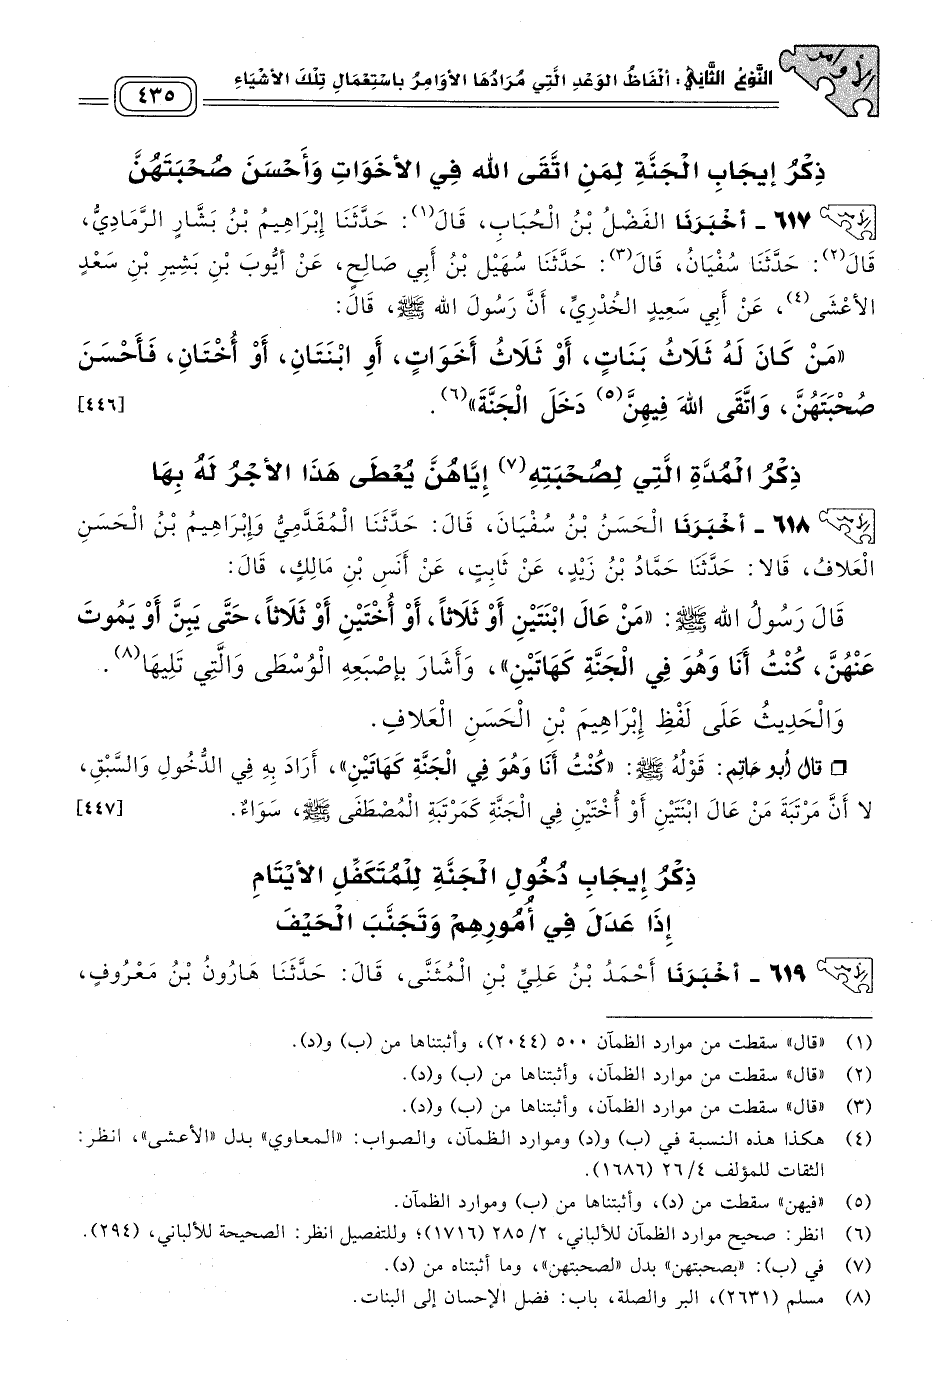 الأوامر
النَّوْعُ الثَّانِي: ألْفَاظُ الوَعْدِ الَّتِي مُرَادُهَا الأوَامِرُ بِاسْتِعْمَالِ تِلْكَ الأشْيَاءِ
٤٣٥
ذِكْرُ إيجَابِ الْجَنَّةِ لِمَنِ اتَّقَى الله فِي الأخَوَاتِ وَأَحْسَنَ صُحْبَتَهُنَّ
٦١٧ ـ أخْبَرَنَا الفَضْلُ بْنُ الْحُبَابِ، قَالَ(١): حَدَّثَنَا إبْرَاهِيمُ بْنُ بَشَّارٍ الرَّمَادِيُّ،
قَالَ(٢): حَدَّثَنَا سُفْيَانُ، قَالَ(٣): حَدَّثَنَا سُهَيْلُ بْنُ أبِي صَالِحٍ، عَنْ أيُّوبَ بْنِ بَشِيرِ بْنِ سَعْدٍ
الأعْشَى(٤)، عَنْ أبِي سَعِيدٍ الخُدْرِيِّ، أنَّ رَسُولَ الله ﷺ، قَالَ:
«مَنْ كَانَ لَهُ ثَلَاثُ بَنَاتٍ، أوْ ثَلَاثُ أخَوَاتٍ، أوِ ابْنَتَانِ، أوْ أُخْتَانِ، فَأَحْسَنَ
صُحْبَتَهُنَّ، وَاتَّقَى اللهَ فِيهِنَّ(٥) دَخَلَ الْجَنَّةَ»(٦). [٤٤٦]
ذِكْرُ الْمُدَّةِ الَّتِي لِصُحْبَتِهِ(٧) إيَّاهُنَّ يُعْطَى هَذَا الأجْرُ لَهُ بِهَا
٦١٨ ـ أخْبَرَنَا الْحَسَنُ بْنُ سُفْيَانَ، قَالَ: حَدَّثَنَا الْمُقَدَّمِيُّ وَإبْرَاهِيمُ بْنُ الْحَسَنِ
الْعَلافُ، قَالا: حَدَّثَنَا حَمَّادُ بْنُ زَيْدٍ، عَنْ ثَابِتٍ، عَنْ أنَسِ بْنِ مَالِكٍ، قَالَ:
قَالَ رَسُولُ الله ﷺ: «مَنْ عَالَ ابْنَتَيْنِ أوْ ثَلَاثاً، أوْ أُخْتَيْنِ أوْ ثَلَاثاً، حَتَّى يَبِنَّ أوْ يَمُوتَ
عَنْهُنَّ، كُنْتُ أنَا وَهُوَ فِي الْجَنَّةِ كَهَاتَيْنِ»، وَأَشَارَ بِإصْبَعِهِ الْوُسْطَى وَالَّتِي تَلِيهَا(٨).
وَالْحَدِيثُ عَلَى لَفْظِ إبْرَاهِيمَ بْنِ الْحَسَنِ الْعَلافِ.
❒ قال أبو حاتم: قَوْلُهُ ﷺ: «كُنْتُ أنَا وَهُوَ فِي الْجَنَّةِ كَهَاتَيْنِ»، أرَادَ بِهِ فِي الدُّخُولِ وَالسَّبْقِ،
لا أنَّ مَرْتَبَةَ مَنْ عَالَ ابْنَتَيْنِ أوْ أُخْتَيْنِ فِي الْجَنَّةِ كَمَرْتَبَةِ الْمُصْطَفَى ﷺ، سَوَاءٌ. [٤٤٧]
ذِكْرُ إيجَابِ دُخُولِ الْجَنَّةِ لِلْمُتَكَفِّلِ الأيْتَامِ
إذَا عَدَلَ فِي أُمُورِهِمْ وَتَجَنَّبَ الْحَيْفَ
٦١٩ ـ أخْبَرَنَا أَحْمَدُ بْنُ عَلِيِّ بْنِ الْمُثَنَّى، قَالَ: حَدَّثَنَا هَارُونُ بْنُ مَعْرُوفٍ،
(١) «قال» سقطت من موارد الظمآن ٥٠٠ (٢٠٤٤)، وأثبتناها من (ب) و(د).
(٢) «قال» سقطت من موارد الظمآن، وأثبتناها من (ب) و(د).
(٣) «قال» سقطت من موارد الظمآن، وأثبتناها من (ب) و(د).
(٤) هكذا هذه النسبة في (ب) و(د) وموارد الظمآن، والصواب: «المعاوي» بدل «الأعشى»، انظر:
الثقات للمؤلف ٢٦/٤ (١٦٨٦).
(٥) «فيهن» سقطت من (د)، وأثبتناها من (ب) وموارد الظمآن.
(٦) انظر: صحيح موارد الظمآن للألباني، ٢٨٥/٢ (١٧١٦)؛ وللتفصيل انظر: الصحيحة للألباني، (٢٩٤).
(٧) في (ب): «بصحبتهن» بدل «لصحبتهن»، وما أثبتناه من (د).
(٨) مسلم (٢٦٣١)، البر والصلة، باب: فضل الإحسان إلى البنات.